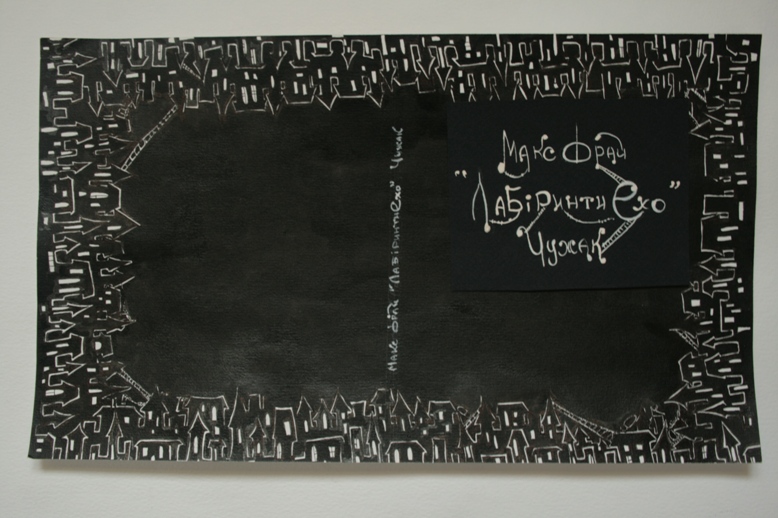 Макс Фрай "Лабіринти Ехо" Чужак
Макс Фрай
"Лабіринти Ехо"
Чужак